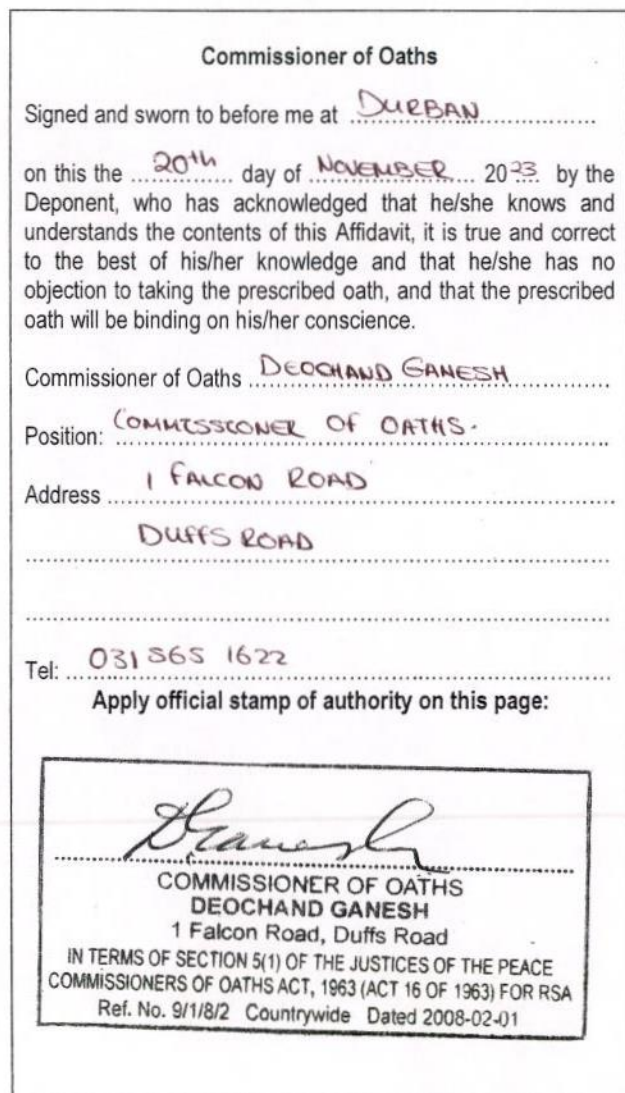 Commissioner of Oaths
Signed and sworn to before me at DURBAN
on this the 20th day of NOVEMBER 2023 by the
Deponent, who has acknowledged that he/she knows and
understands the contents of this Affidavit, it is true and correct
to the best of his/her knowledge and that he/she has no
objection to taking the prescribed oath, and that the prescribed
oath will be binding on his/her conscience.
Commissioner of Oaths DEOCHAND GANESH
Position: COMMISSIONER OF OATHS.
Address 1 FALCON ROAD
DUFFS ROAD
Tel: 031 565 1622
Apply official stamp of authority on this page:
DGanesh
COMMISSIONER OF OATHS
DEOCHAND GANESH
1 Falcon Road, Duffs Road
IN TERMS OF SECTION 5(1) OF THE JUSTICES OF THE PEACE
COMMISSIONERS OF OATHS ACT, 1963 (ACT 16 OF 1963) FOR RSA
Ref. No. 9/1/8/2 Countrywide Dated 2008-02-01